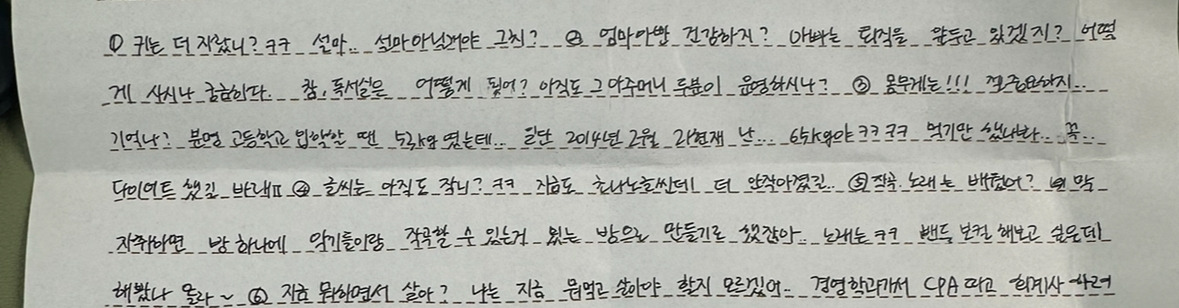 ① 키는 더 자랐니? ㅋㅋ 설마.. 설마 아닐꺼야 그치? ② 엄마아빤 건강하지? 아빠는 퇴직을 앞두고 있겠지? 어떻
게 사시나 궁금하다. 참, 독서실은 어떻게 됬어? 아직도 그 아주머니 두분이 운영하시나? ③ 몸무게는!!! 젤 중요하지..
기억나? 분명 고등학교 입학할 땐 53kg 였는데.. 일단 2014년 2월 현재 난... 65kg야 ㅋㅋㅋㅋ 먹기만 했나봐.. 꼭..
다이어트 했길 바래ㅠ ④ 글씨는 아직도 작니? ㅋㅋ 지금도 초나노글씬데 더 안작아졌길.. ⑤ 작곡 노래는 배웠어? 너 막
자취하면 방 하나에 악기들이랑 작곡할 수 있는거 있는 방으로 만들기로 했잖아.. 노래는 ㅋㅋ 밴드 보컬 해보고 싶은데
해봤나 몰라~ ⑥ 지금 뭐하면서 살아? 나는 지금 뭐먹고 살아야 할지 모르겠어.. 경영학과가서 CPA 따고 회계사 하려